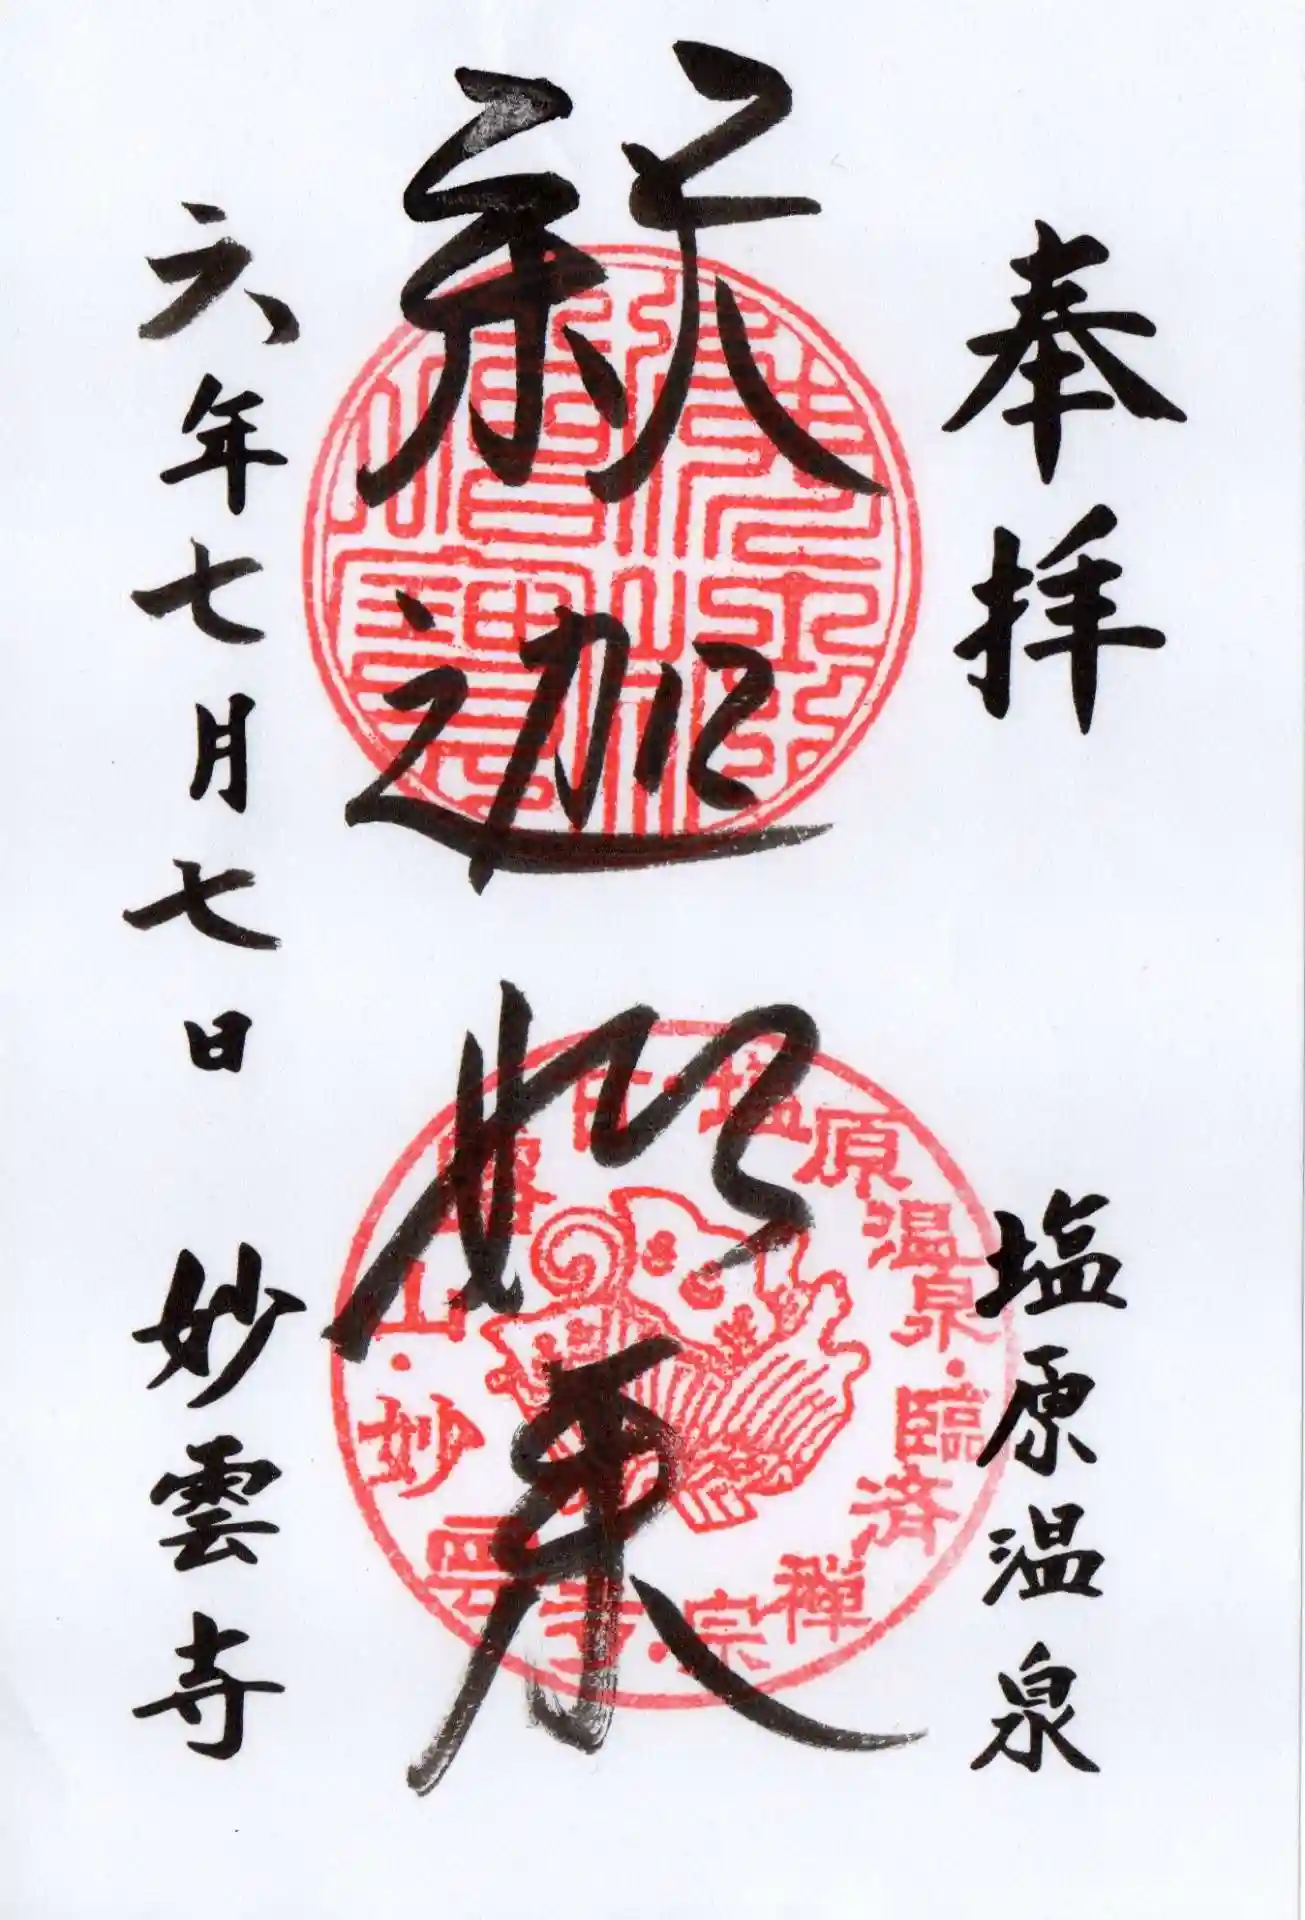 奉拝
塩原温泉
釈迦
如来
六年七月七日
妙雲寺
塩原温泉・臨済禅宗・妙雲寺